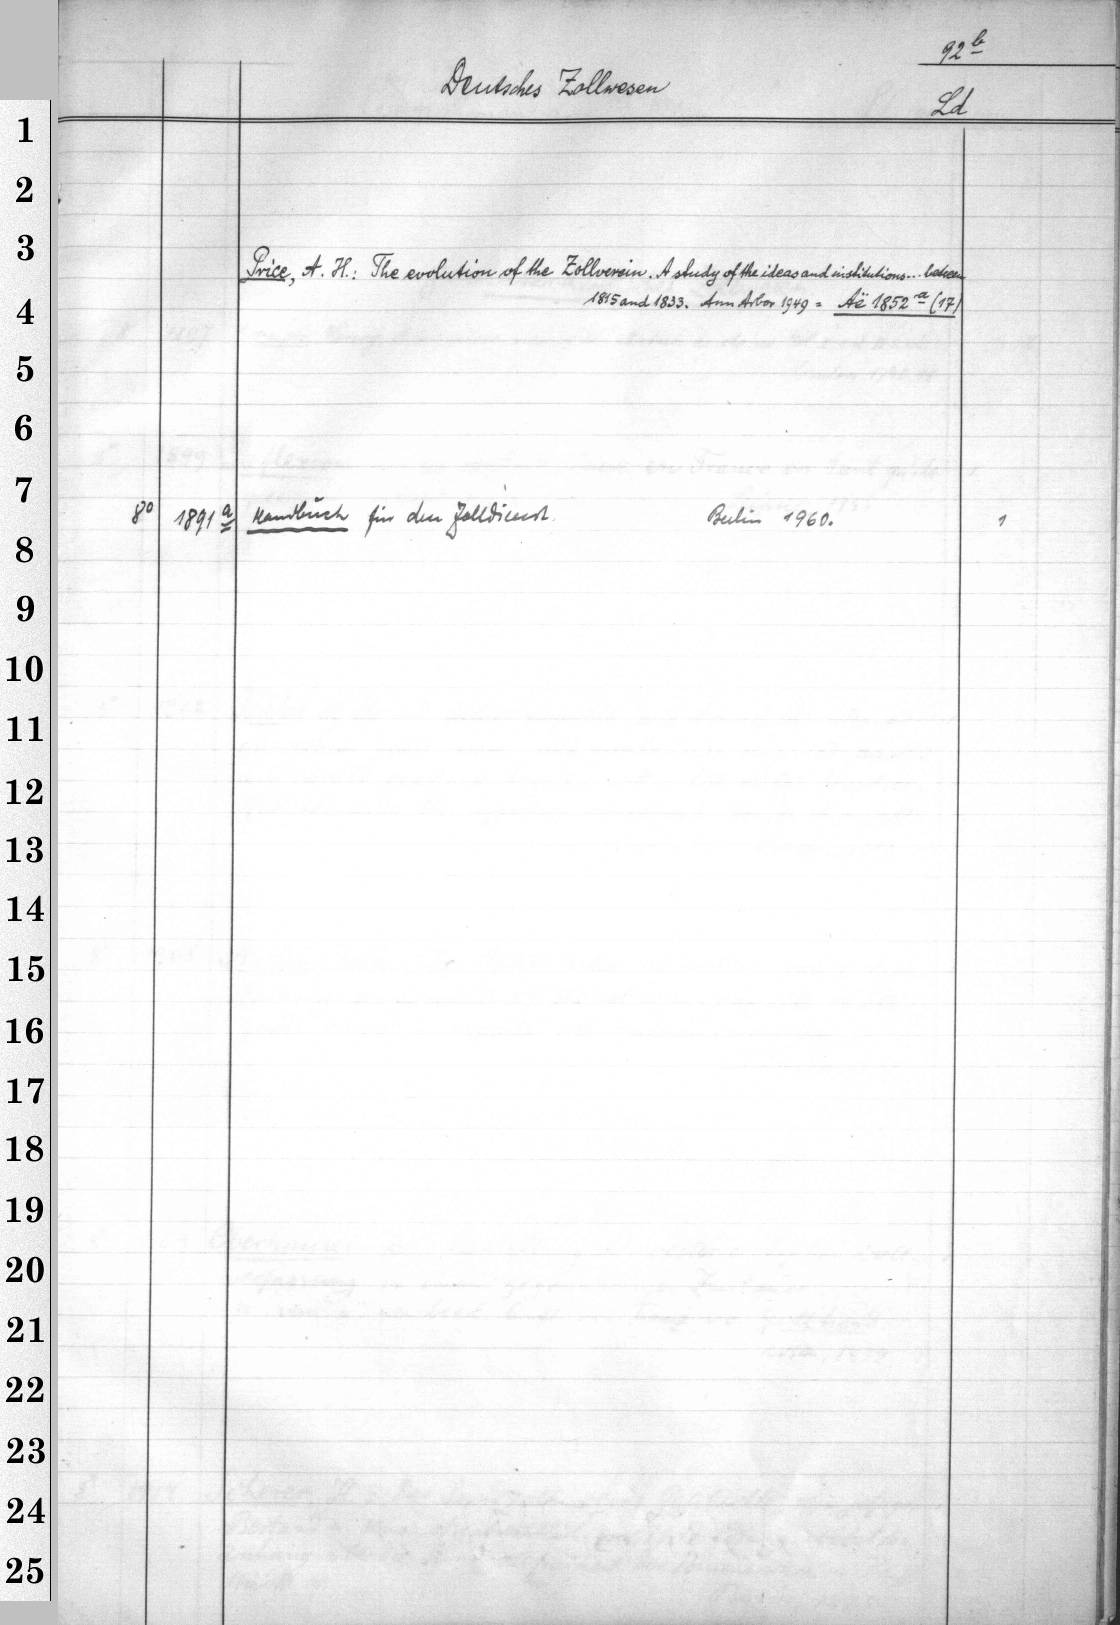 92 b
Deutsches Zollwesen
Ld
1
2
3
Price, A. H.: The evolution of the Zollverein. A study of the ideas and institutions... between
1815 and 1833. Ann Arbor 1949 = Aë 1852 a (17)
4
5
6
7
8° 1891 a Handbuch für den Zolldienst. Berlin 1960. 1
8
9
10
11
12
13
14
15
16
17
18
19
20
21
22
23
24
25